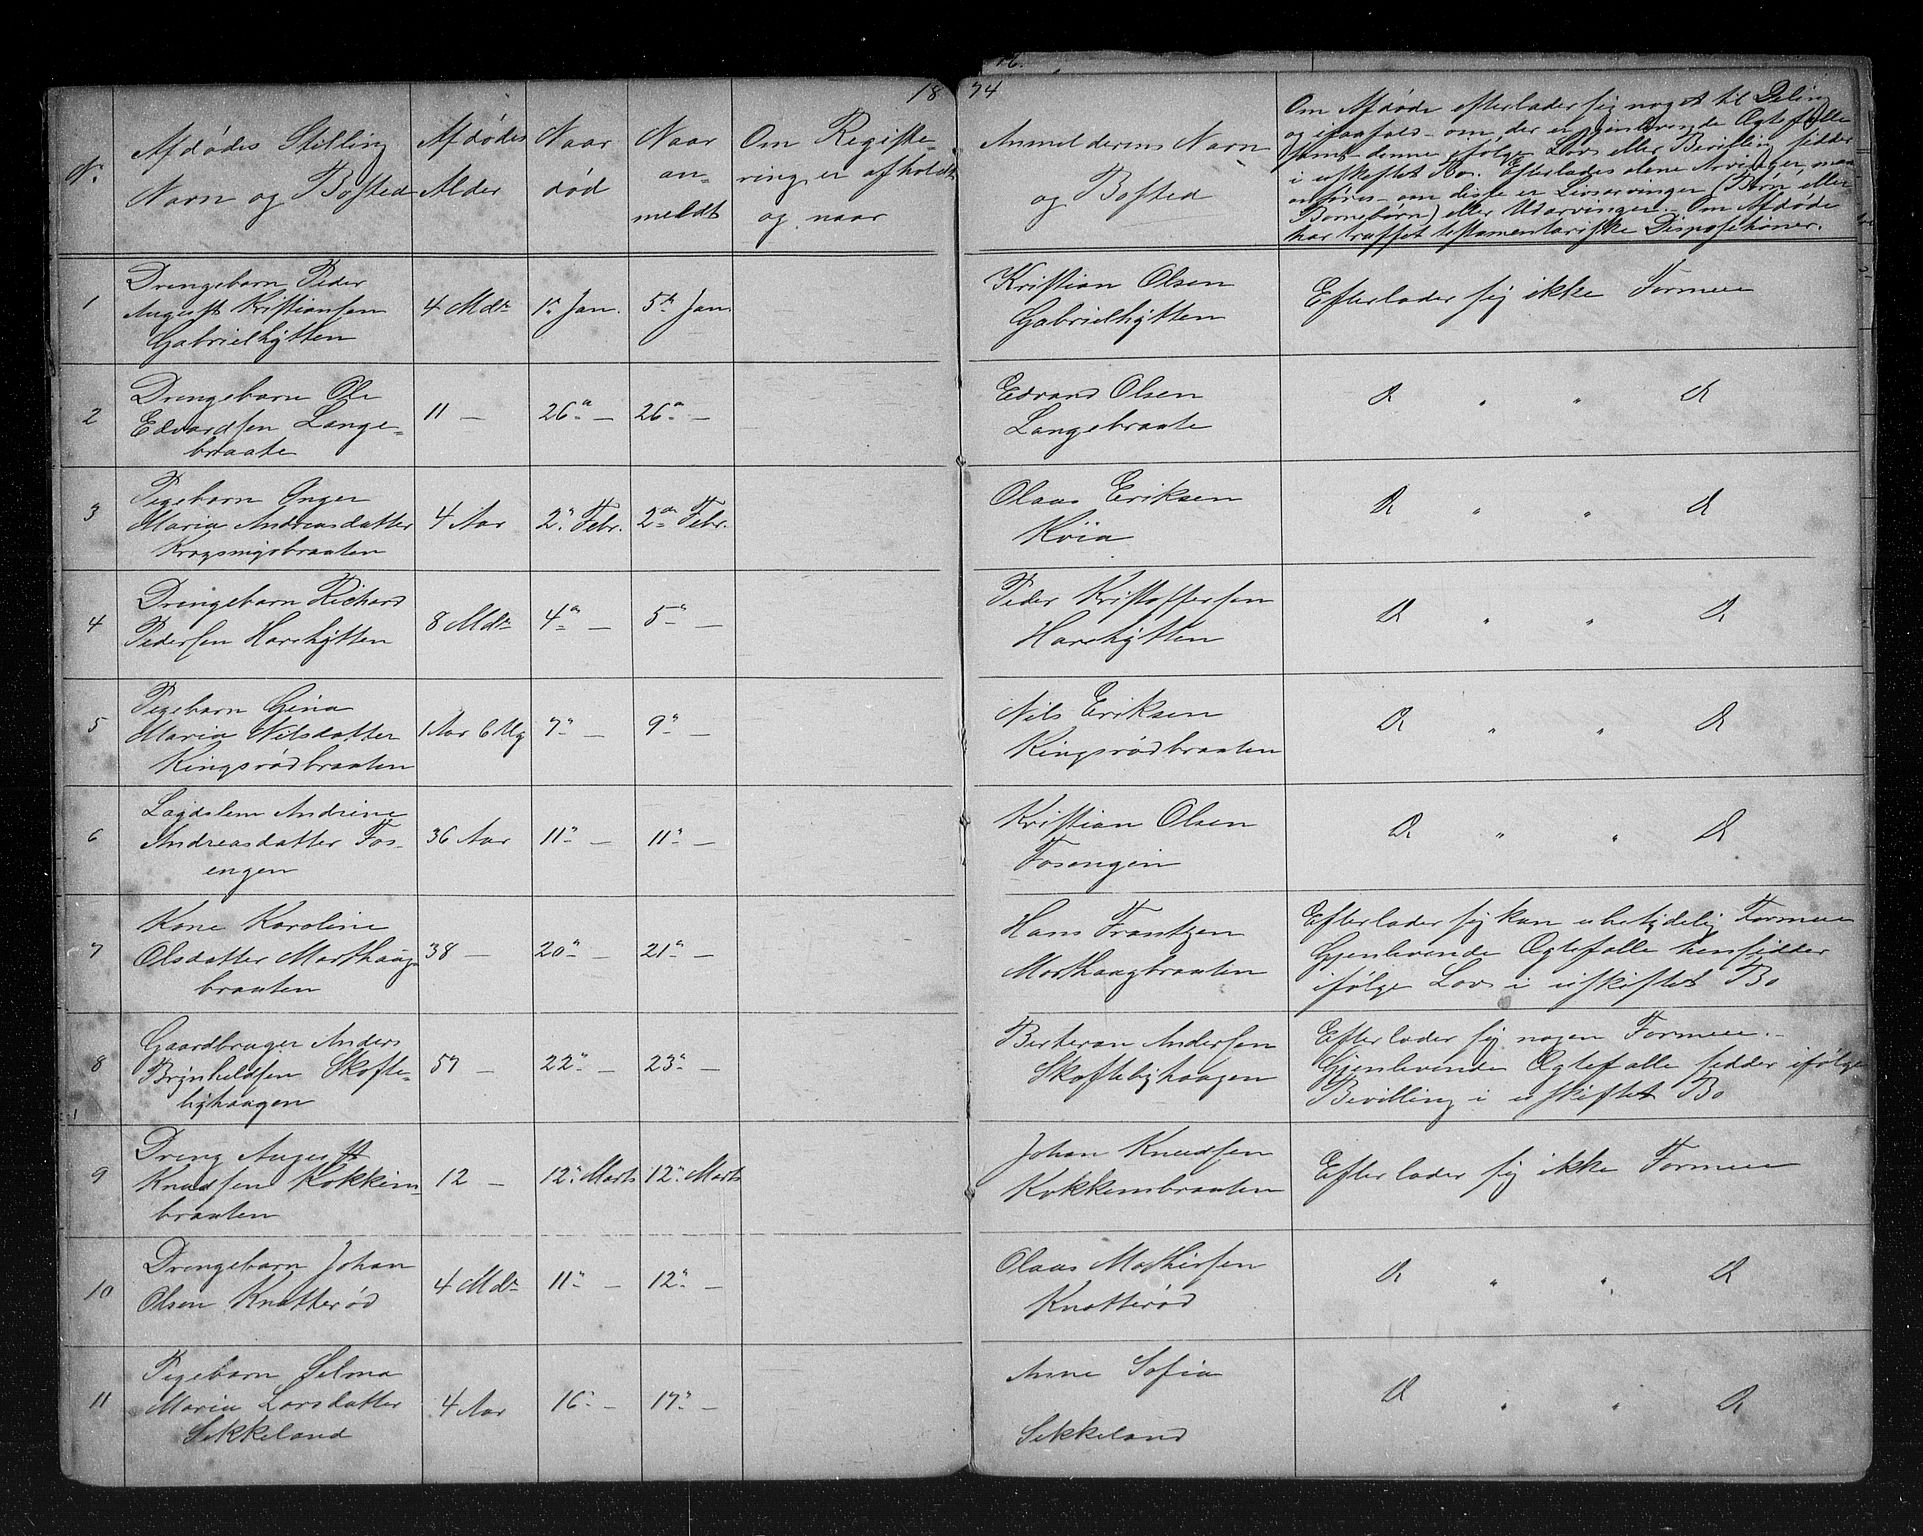 1874
No.
Afdødes Stilling
Navn og Bosted
Afdødes
Alder
Naar
død
Naar
an-
meldt
Om Registe-
ring er afholdt
og naar
Anmelderens Navn
og Bosted
Om Afdøde efterlader sig noget til Deling
og isaafals om der er gjenlevende Ægtefælle
samt denne ifølge Lov eller Bevilling sidder
i uskiftet Bo. Efterlades alene Arvinger, maa
anføres om disse er Livsarvinger (Børn eller
Børnebørn) eller Udarvinger. Om Afdøde
har truffet testamentariske Dispositioner.
1
Drengebarn Peder
August Kristiansen
Gabrielhytten
4 Mdr
1ste Jan.
5te Jan.
Kristian Olsen
Gabrielhytten
Efterlader sig ikke Formue
2
Drengebarn Ole
Edvardsen Lange-
braate
11 —
26de —
26de —
Edvard Olsen
Langebraate
D " " D
3
Pigebarn Inger
Maria Andreasdatter
4 Aar
2" Febr.
2den Febr.
Olaus Eriksen
Köia
D " " D
4
Drengebarn Richard
Pedersen Harehytten
8 Mdr
4de —
5" —
Peder Kristoffersen
Harehytten
D " " D
5
Pigebarn Gina
Maria Nilsdatter
Kingsrødbraaten
1 Aar 6 Ug
7" —
9" —
Nils Eriksen
Kingsrødbraaten
D " " D
6
Lægdslem Andrine
Andreasdatter Fos-
engen
36 Aar
11" —
11" —
Kristian Olsen
Fosengen
D " " D
7
Kone Karoline
Olsdatter Morthaug-
braaten
38 —
20" —
21" —
Hans Frantzen
Morthaugbraaten
Efterlader sig kun ubetydelig Formue
Gjenlevende Ægtefælle hensidder
ifølge Lov i uskiftet Bo
8
Gaardbruger Anders
Brynhildsen Skofte-
byhaugen
57 —
22" —
23" —
Berteran Andersen
Skoftebyhaugen
Efterlader sig nogen Formue. -
Gjenlevende Ægtefælle sidder ifølge
Bevilling i uskiftet Bo
9
Dreng August
Knudsen Kokkim-
braaten
12 —
12" Marts
12" Marts
Johan Knudsen
Kokkembraaten
Efterlader sig ikke Formue
10
Drengebarn Johan
Olsen Knatterød
4 Mdr
11" —
12" —
Olaus Mathisen
Knatterød
D " " D
11
Pigebarn Selma
Maria Larsdatter
Sekkeland
4 Aar
16" —
17" —
Anne Sofia
Sekkeland
D " " D